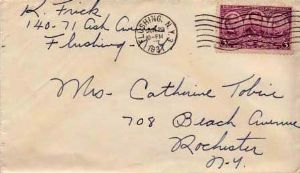 K. Frick
140-71 Ash Ave
Flushing.
FLUSHING, N.Y.
1937
Mrs. Catherine Tobin
708 Beach Avenue
Rochester
N.Y.